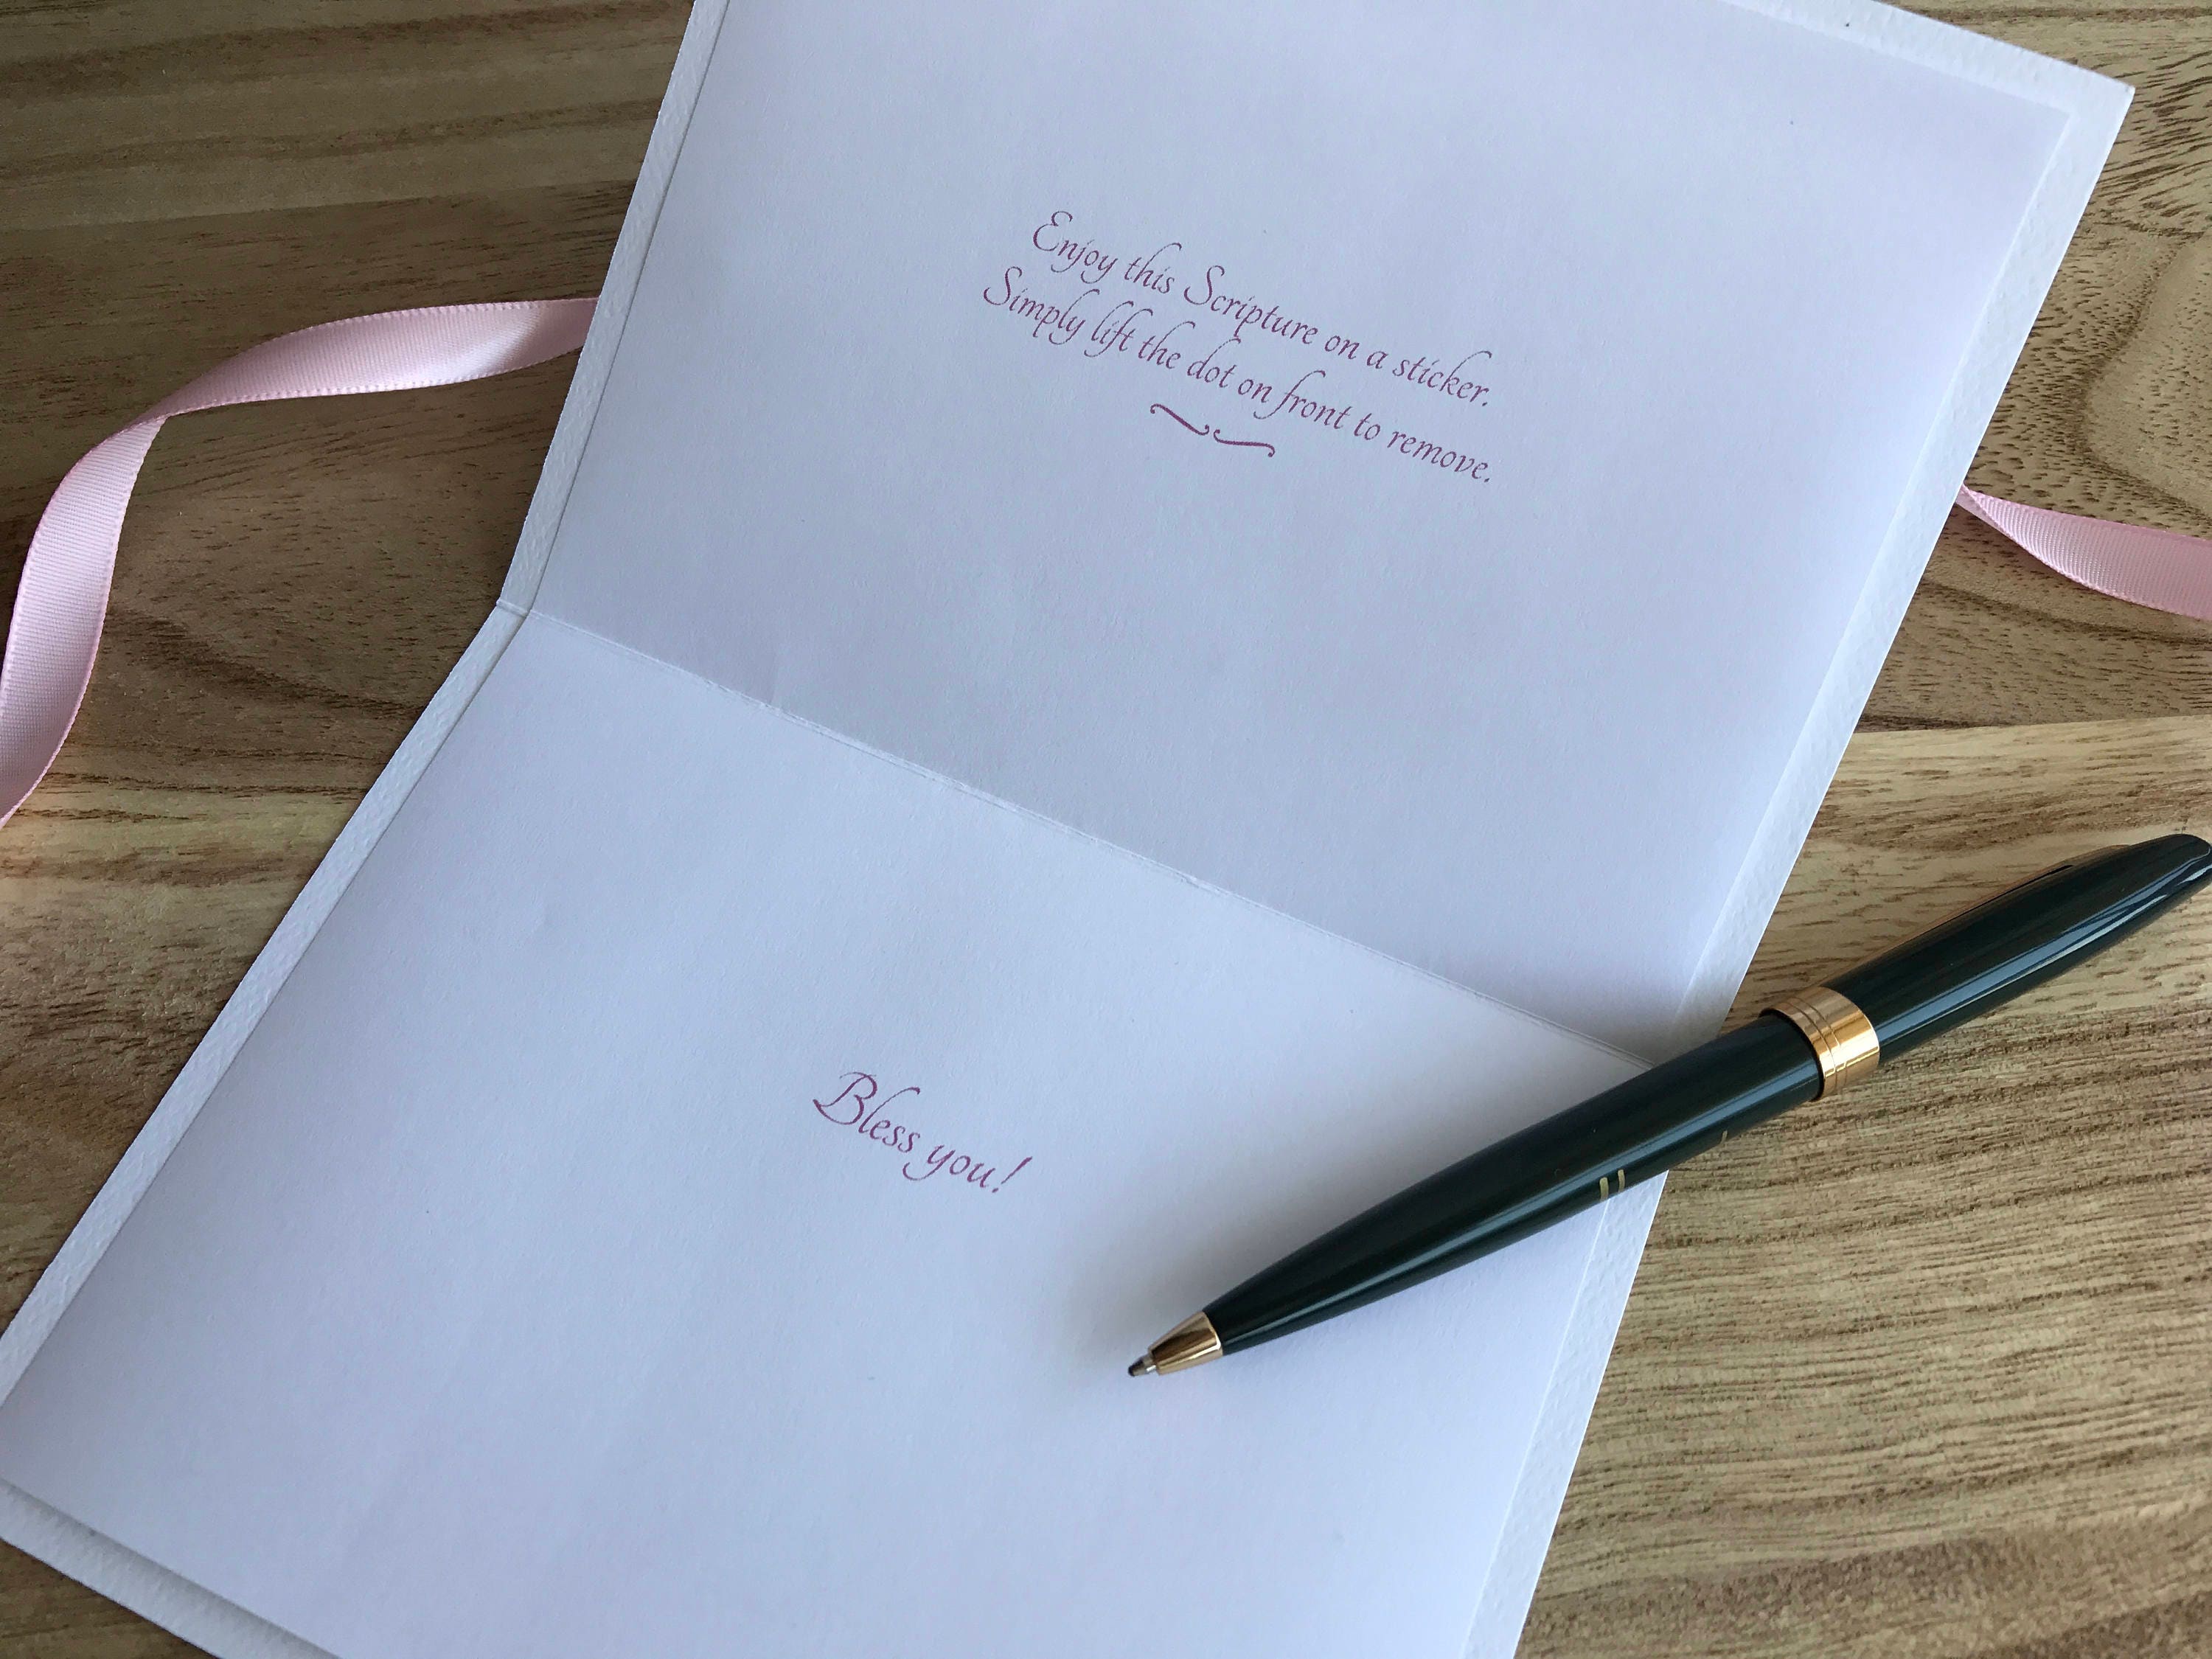 Enjoy this Scripture on a sticker.
Simply lift the dot on front to remove.
Bless you!